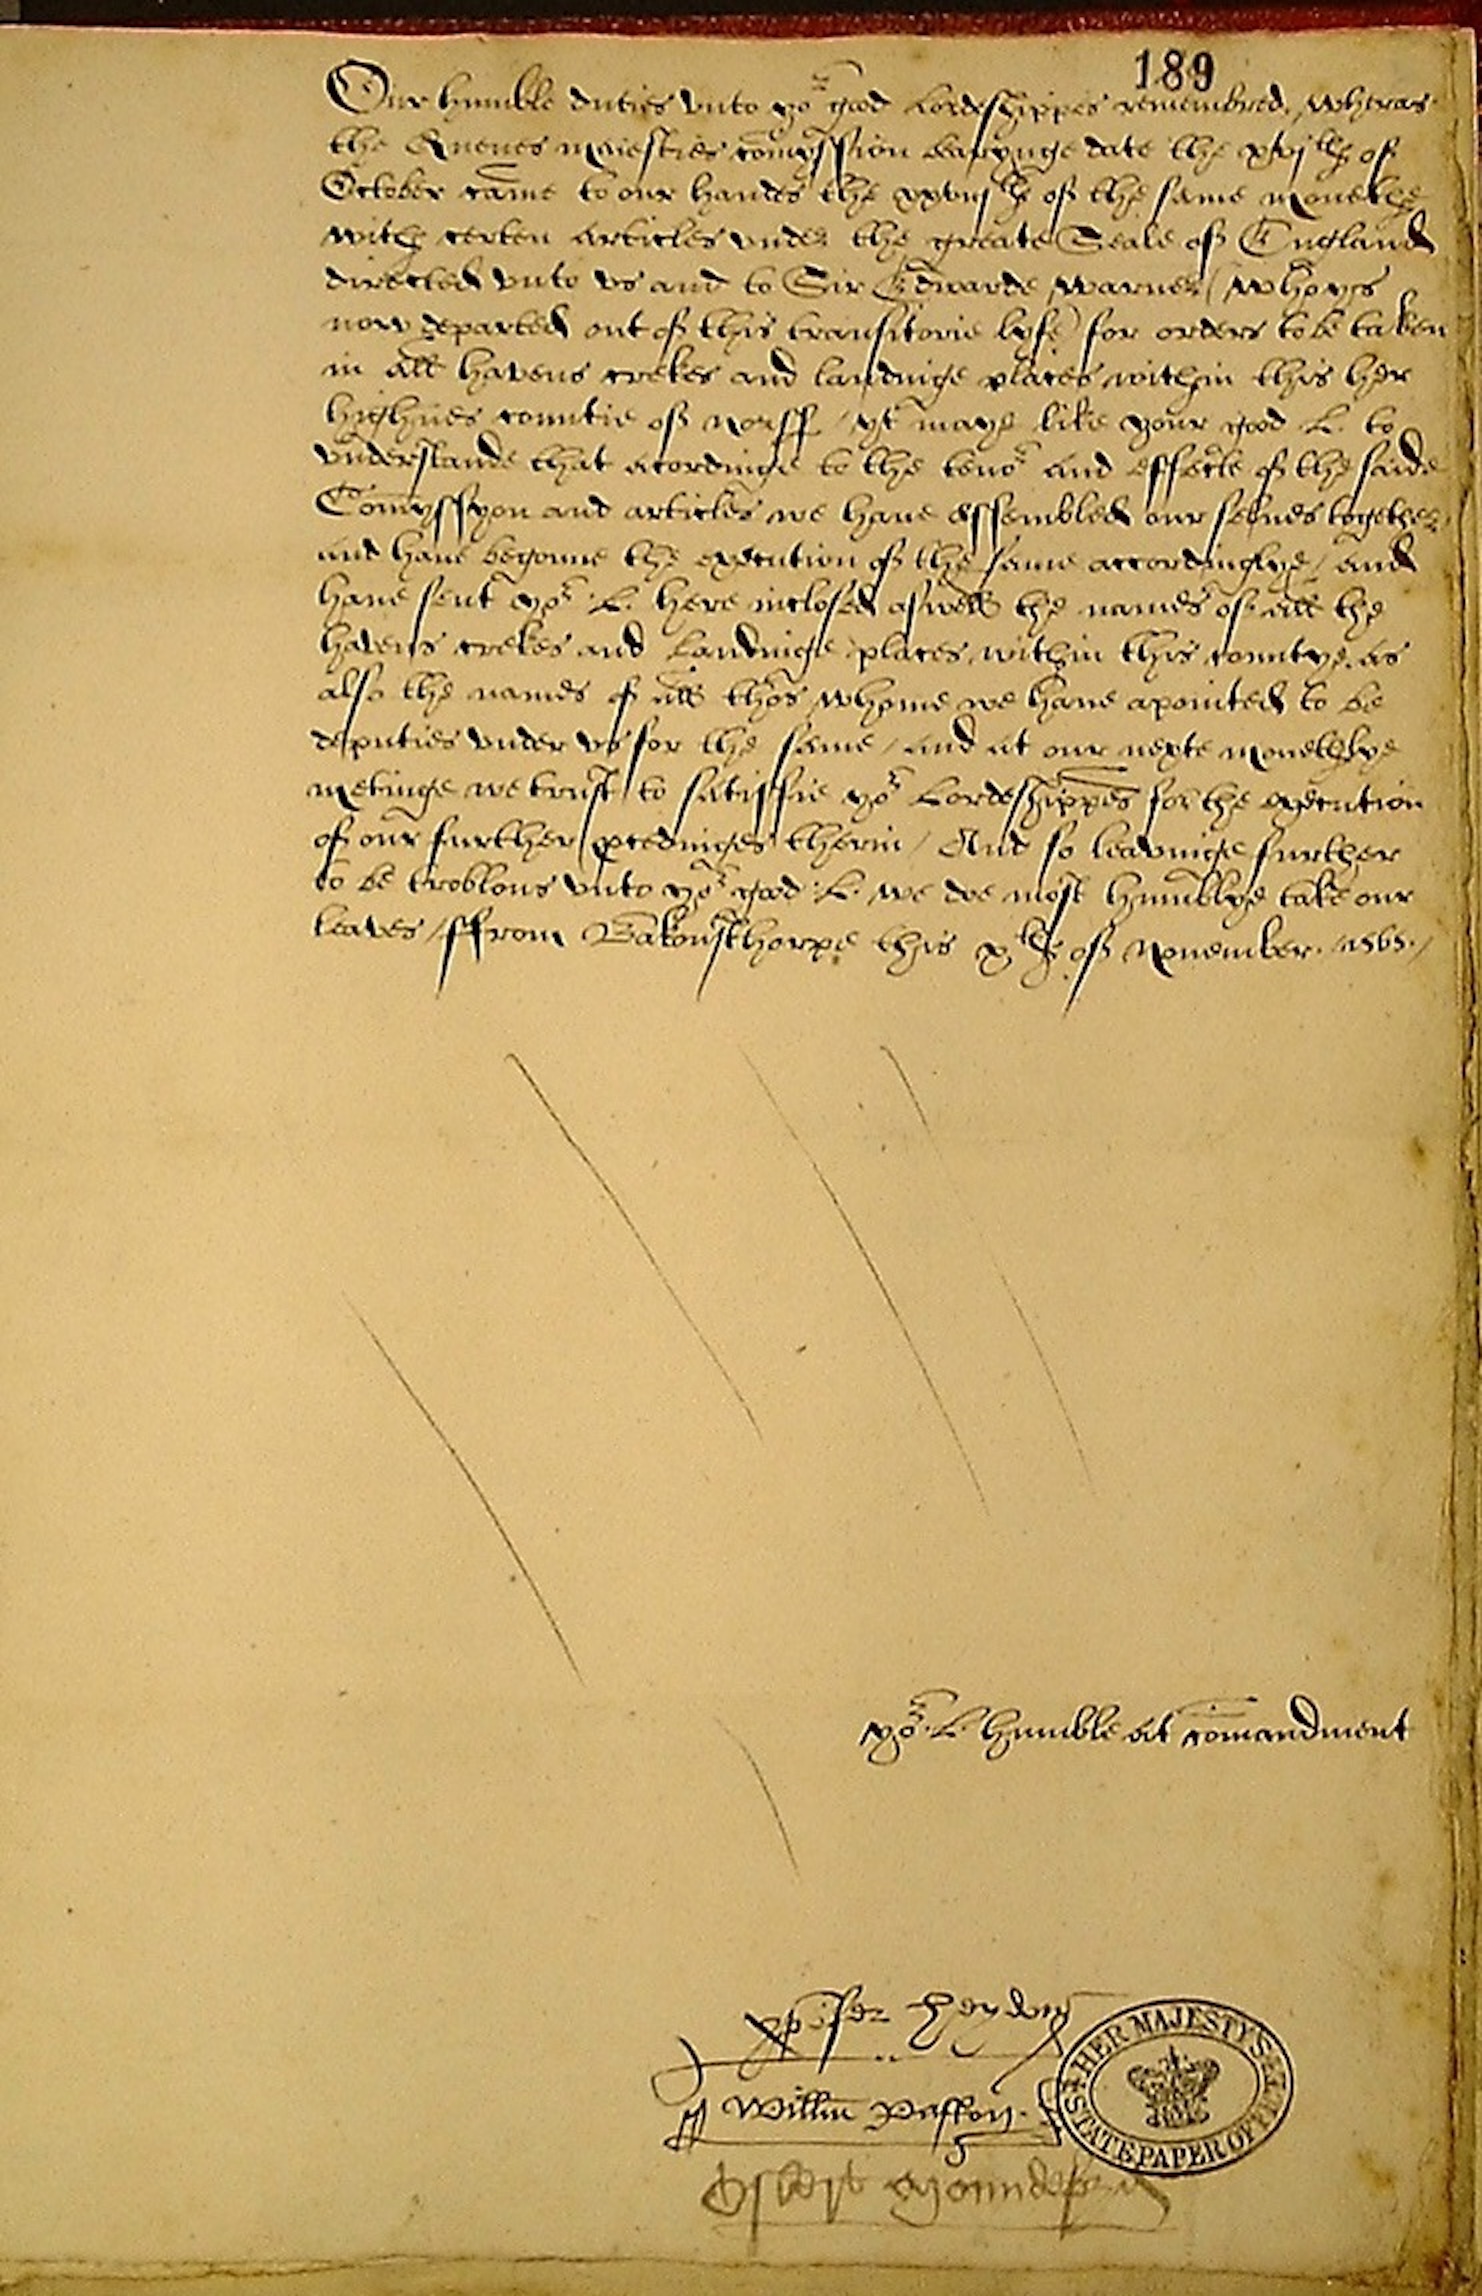 189
Our humble duties vnto yor good Lordeshippes remembred. Wheras
the Quenes maiesties comyssion bearynge date the xvjth of
October came to our handes the xxviijth of the same monethe
with certen articles vnder the greate Seale of England
directed vnto vs and to Sir Edwarde Warner (who ys
now departed out of this transitorie lyfe) for orders to be taken
in all havens crekes and landinge places within this her
highnes countie of Norff / yt maye like your good L. to
vnderstande that acordinge to the tenor and effecte of the saide
Comyssyon and articles we haue assembled our selues together
and haue begonne the execution of the same accordinglye / and
haue sent yor L. here inclosed aswell the names of all the
havens crekes and Landinge places within this countye. as
also the names of all thos whome we haue apointed to be
deputies vnder vs for the same / and at our nexte monethlye
metinge we trust to satisfie yor Lordeshippes for the execution
of our further pcedinges therin / And so leavinge further
to be troblous vnto yor good L. we doe most humblye take our
leaves / ffrom Bakonsthorpe this xth of Nouember. 1565. /
yor L. humble at comandment
xpofer heydon
Willm Paston.
Osbert Moundeford
HER MAJESTY'S
STATE PAPER OFFICE